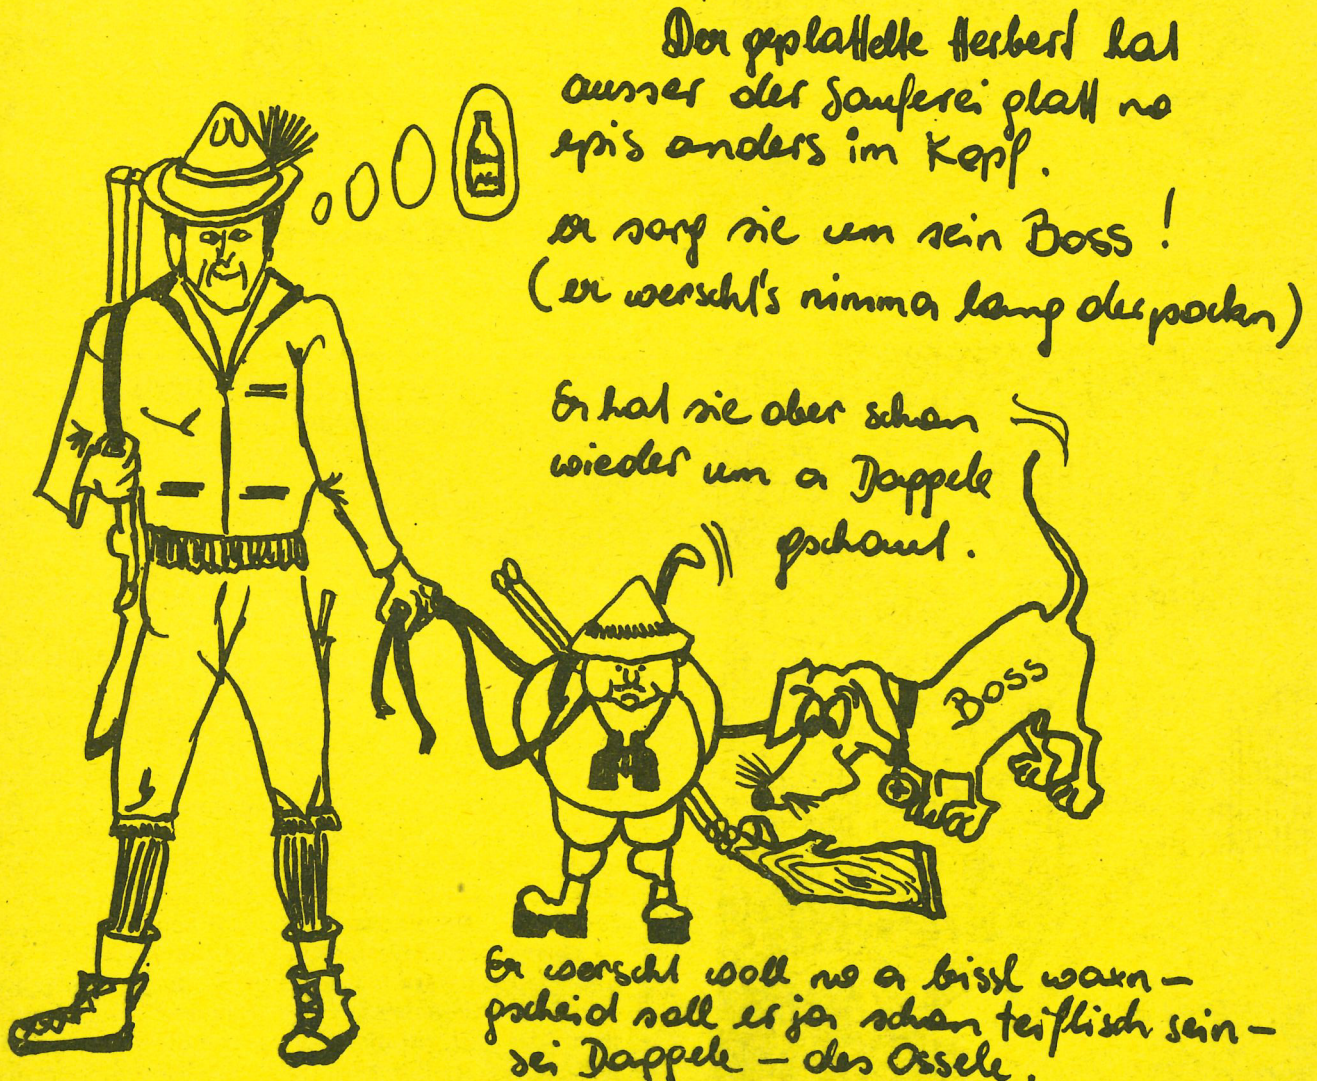 Der geplattelte Herbert hat
ausser der Sauferei glatt no
epis anders im Kopf.
er sorg sie um sein Boss!
(er werscht's nimma lang derpackn)
Er hat sie aber schon
wieder um a Dappele
gschaut.
BOSS
Er werscht woll no a bissl waxn –
gscheid soll er ja schon teiflisch sein –
sei Dappele – des Ossele.